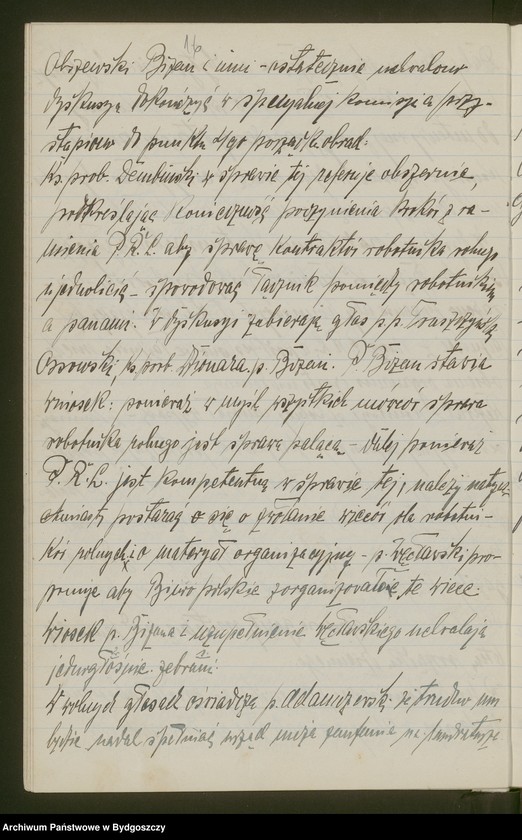 16
Olszewski Bizan i inni – ostatecznie uchwalono
dyskusza dokończyć w specyalnej komisji a przy-
stąpiono do punktu 4go porządku obrad:
Ks. prob. Dembiński w sprawie tej referuje obszernie,
podkreślając konieczność poczynienia kroków z ra-
mienia P.R.L. aby sprawę kontraktów robotnika rolnego
ujednolicić – spowodować łącznik pomiędzy robotnikiem
a panami. W dyskusyi zabierają głos p.p.
Ossowski, ks. prob. p. Bizan. P. Bizan stawia
wniosek: ponieważ w myśl wszystkich mówców sprawa
robotnika rolnego jest sprawą palącą – dalej ponieważ
P.R.L. jest kompetentną w sprawie tej, należy natych-
chmiast postarać się o zwołanie wieców dla robotni-
ków rolnych i o materyał organizacyjny – p. Węcławski pro-
ponuje aby Biuro polskie zorganizowało te wiece.
Wniosek p. Bizana i uzupełnienie Węcławskiego uchwalają
jednogłośnie zebrani.
W wolnych głosach oświadcza p. Adamczewski że trudno mu
będzie nadal spełniać urząd męża zaufania na
Archiwum Państwowe w Bydgoszczy